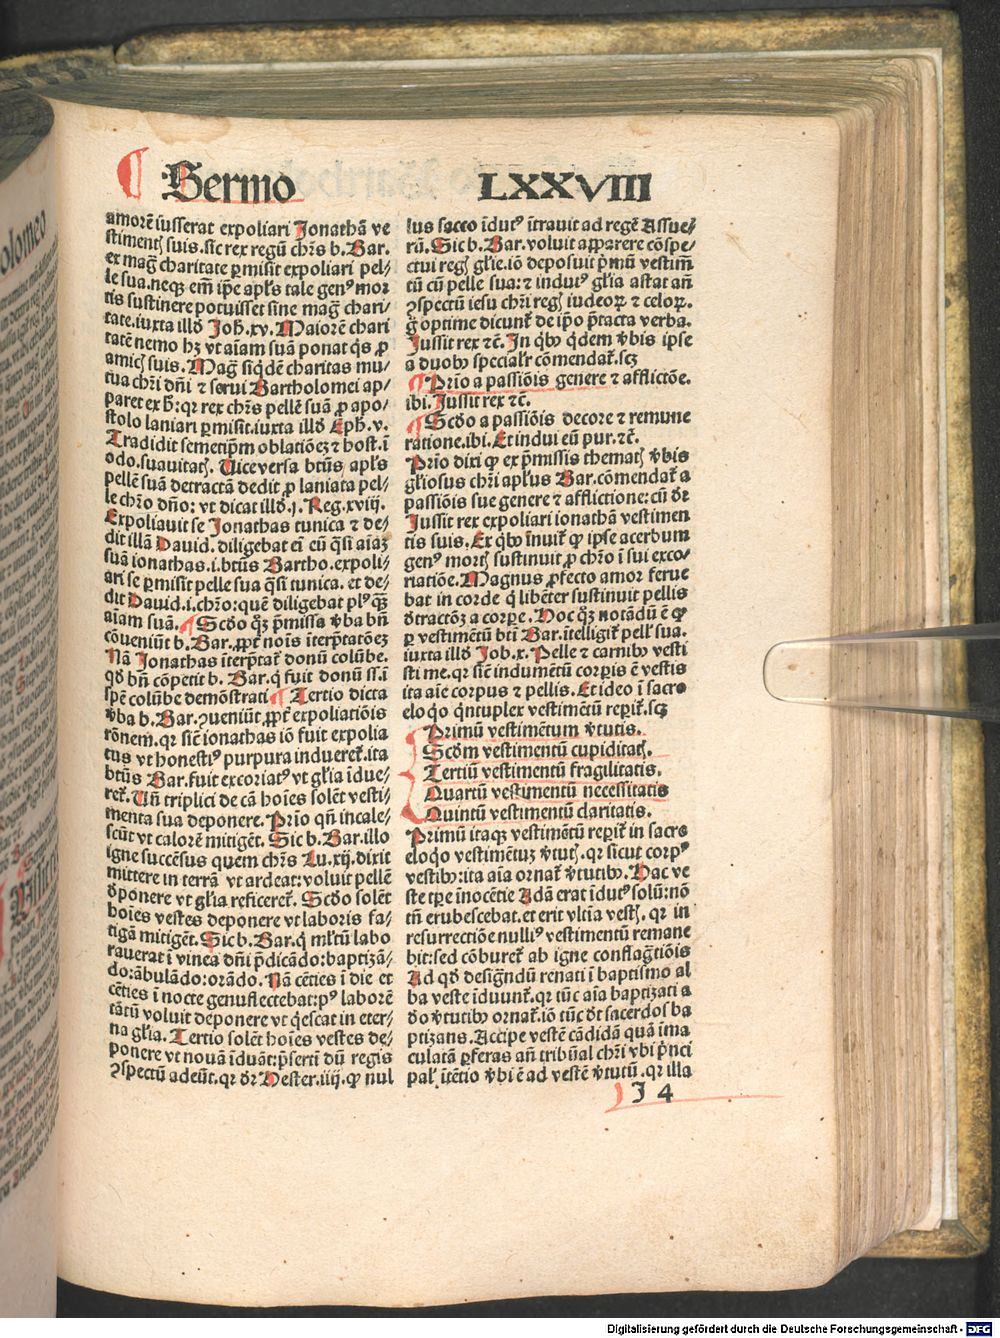 ¶ Sermo LXXVIII
amorē iusserat expoliari Jonathā ve
stimentꝭ suis. sic rex regū chrs̄ b. Bar.
ex maḡ charitate ꝑmisit expoliari pel⸗
le sua. neqꝫ em̄ ip̄e apl̄s tale genꝰ mor
tis sustinere potuisset sine maḡ chari⸗
tate. iuxta illđ Joh̄. xv. Maiorē chari
tatē nemo hꝫ vt aīam suā ponat q̇s ꝓ
amicꝭ suis. Maḡ siq̇dē charitas mu⸗
tua chrī dn̄i ⁊ serui Bartholomei ap⸗
paret ex h̄: qꝛ rex chrs̄ pellē suā ꝓ apo⸗
stolo laniari ꝑmisit. iuxta illđ Eph̄. v.
Tradidit semetip̄m oblationeꝫ ⁊ host. ī
odo. suauitatꝭ. Uice versa btūs apl̄s
pellē suā detractā dedit ꝓ laniata pel⸗
le chrō dn̄o: vt dicat illđ .j. Reg. xviij.
Expoliauit se Jonathas tunica ⁊ de⸗
dit illā Dauid. diligebat eī eū q̄si aīaꝫ
suā ionathas .i. btūs Bartho. expoli⸗
ari se ꝑmisit pelle sua q̄si tunica. et de⸗
dit Dauid .i. chrō: quē diligebat plꝰ qꝫ
aīam suā. ¶ Scđo qꝫ p̄missa v̄ba bn̄
cōueniūt b. Bar. ꝓpt̄ noīs īterp̄tatōeꝫ
Nā Jonathas īterp̄tat̄ donū colūbe.
qđ bn̄ cōpetit b. Bar. q̇ fuit donū ss̄. ī
spē colūbe demōstrati ¶ Tertio dicta
v̄ba b. Bar. ꝯueniūt, ꝓpt̄ expoliatiōis
rōnem. qꝛ sic̄ ionathas iō fuit expolia
tus vt honestiꝰ purpura indueret̄. ita
btūs Bar. fuit excoriatꝰ vt gl̄ia īdue⸗
ret̄. Un̄ triplici de cā hoīes solēt vesti⸗
menta sua deponere. Prīo qn̄ incale⸗
scūt vt calorē mitigēt. Sic b. Bar. illo
igne succēsus quem chrs̄ Lu. xij. dixit
mittere in terrā vt ardeat: voluit pellē
đponere vt gl̄ia reficeret̄. Scđo solēt
hoīes vestes deponere vt laboris fa⸗
tigā mitigēt. Sic b. Bar. q̇ ml̄tū labo
rauerat ī vinea dn̄i p̄dicādo: baptizā⸗
do: ābulādo: orādo. Nā cēties ī die et
cēties ī nocte genuflectebat: pꝰ laborē
tātū voluit deponere vt q̇escat in eter⸗
na gl̄ia. Tertio solēt hoīes vestes de⸗
ponere vt nouā īduāt: p̄serti dū regis
ꝯspectū adeūt. qꝛ đr Hester .iiij. ꝙ nul
lus sacco īdutꝰ ītrauit ad regē Assue⸗
rū. Sic b. Bar. voluit apparere cōspe⸗
ctui regꝭ gl̄ie. iō deposuit p̄mū vestim̄
tū cū pelle sua: ⁊ indutꝰ gl̄ia astat añ
ꝯspectū iesu chrī regꝭ iudeoꝝ ⁊ celoꝝ.
ḡ optime dicunt̄ de ip̄o p̄tacta verba.
Jussit rex ⁊c̄. In qⷨ q̇dem v̄bis ipse
a duobꝰ special'r cōmendat̄. scꝫ
¶ Prīo a passiōis genere ⁊ afflictōe.
ibi. Jussit rex ⁊c̄.
¶ Scđo a passiōis decore ⁊ remune
ratione. ibi. Et indui eū pur. ⁊c̄.
Prīo dixi ꝙ ex p̄missis thematꝭ v̄bis
gl̄iosus chrī apl̄us Bar. cōmendat̄ a
passiōis sue genere ⁊ afflictione: cū đr
Jussit rex expoliari ionathā vestimen
tis suis. Ex qⷨ īnuit̄ ꝙ ipse acerbum
genꝰ mortꝭ sustinuit ꝓ chrō ī sui exco⸗
riatiōe. Magnus ꝓfecto amor ferue
bat in corde q̇ libēter sustinuit pellis
đtractōꝫ a corꝑe. Hoc qꝫ notādū ē ꝙ
ꝑ vestimētū btī Bar. ītelligit̄ pell' sua.
iuxta illđ Job. x. Pelle ⁊ carnibꝰ vesti
sti me. qꝛ sic̄ indumētū corꝑis ē vestis
ita aīe corpus ⁊ pellis. Et ideo ī sacro
eloq̇o q̇ntuplex vestimētū reꝑit̄. scꝫ
Primū vestimētum v̄tutis.
Scđm vestimentū cupiditatꝭ.
Tertiū vestimentū fragilitatis.
Quartū vestimentū necessitatis
Quintū vestimentū claritatis.
Primū itaqꝫ vestimētū reꝑit̄ in sacro
eloq̇o vestimētuꝫ v̄tutꝭ. qꝛ sicut corpꝰ
vestibꝰ: ita aīa ornat̄ v̄tutibꝰ. Hac ve
ste tꝑe īnocētie Adā erat īdutꝰ solū: nō
tn̄ erubescebat. et erit vltīa vestꝭ. qꝛ in
resurrectiōe nulliꝰ vestimentū remane
bit: sed cōburet̄ ab igne conflaḡtiōis
Ad qđ desiḡndū renati ī baptismo al
ba veste īduunt̄. qꝛ tūc aīa baptizati a
đo v̄tutibꝰ ornat̄. iō tūc đt sacerdos ba
ptizans. Accipe vestē cādidā quā īma
culatā ꝑferas añ tribūal chrī vbi p̄nci
pal' ītētio v̄bi ē ad vestē v̄tutū. qꝛ illa
J 4
Digitalisierung gefördert durch die Deutsche Forschungsgemeinschaft - DFG